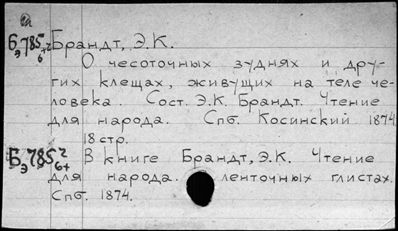 Бэ785 2/6+ Брандт, Э.К.
О чесоточных зуднях и дру-
гих клещах, живущих на теле че-
ловека. Сост. Э.К. Брандт. Чтение
для народа. Спб. Косинский 1874.
18 стр.
Бэ785 2/6+ В книге Брандт, Э.К. Чтение
для народа. ленточных глистах.
Спб. 1874.